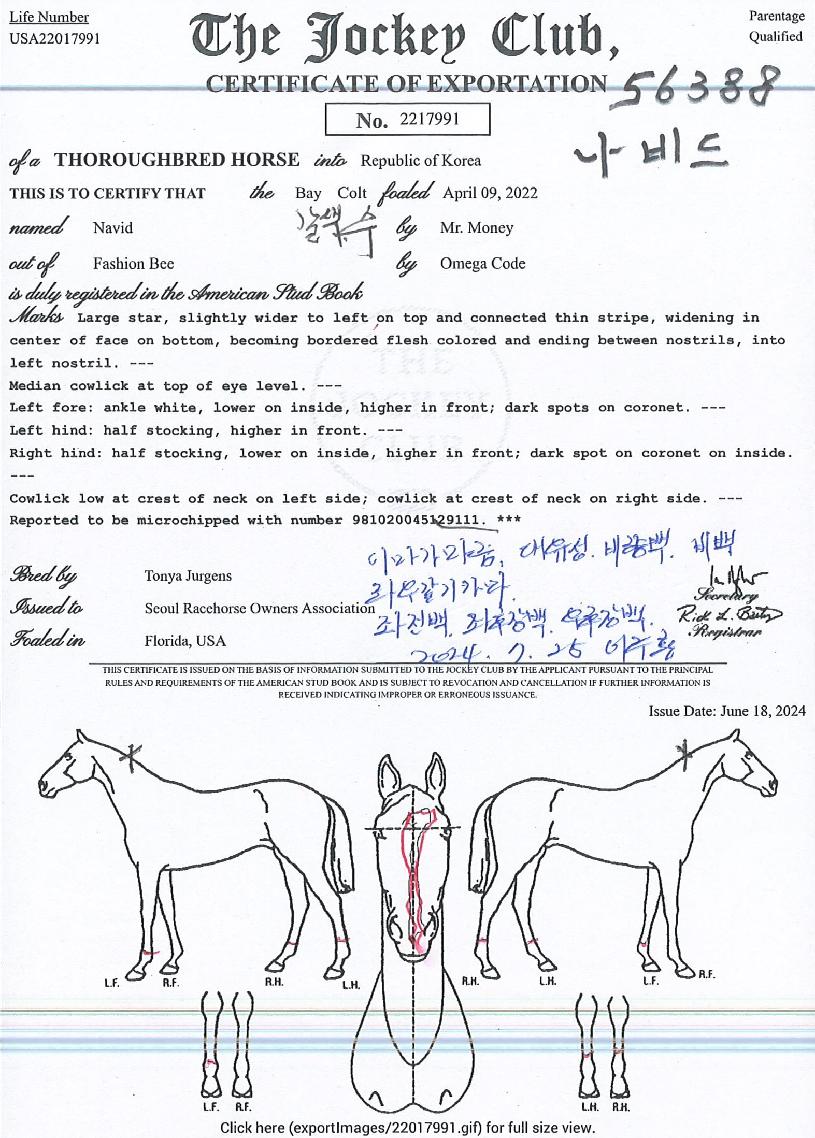 Life Number
USA22017991
The Jockey Club,
Parentage
Qualified
CERTIFICATE OF EXPORTATION
56388
No. 2217991
나비드
of a THOROUGHBRED HORSE into Republic of Korea
THIS IS TO CERTIFY THAT the Bay Colt foaled April 09, 2022
named Navid by Mr. Money
out of Fashion Bee by Omega Code
is duly registered in the American Stud Book
Marks Large star, slightly wider to left on top and connected thin stripe, widening in
center of face on bottom, becoming bordered flesh colored and ending between nostrils, into
left nostril. ---
Median cowlick at top of eye level. ---
Left fore: ankle white, lower on inside, higher in front; dark spots on coronet. ---
Left hind: half stocking, higher in front. ---
Right hind: half stocking, lower on inside, higher in front; dark spot on coronet on inside.
---
Cowlick low at crest of neck on left side; cowlick at crest of neck on right side. ---
Reported to be microchipped with number 981020045129111. ***
이마가마름, 대유성. 비량백. 비백
좌우갈기가마.
좌전백, 좌후장백, 우후장백.
2024. 7. 25
Bred by Tonya Jurgens
Issued to Seoul Racehorse Owners Association
Foaled in Florida, USA
Secretary
Registrar
THIS CERTIFICATE IS ISSUED ON THE BASIS OF INFORMATION SUBMITTED TO THE JOCKEY CLUB BY THE APPLICANT PURSUANT TO THE PRINCIPAL
RULES AND REQUIREMENTS OF THE AMERICAN STUD BOOK AND IS SUBJECT TO REVOCATION AND CANCELLATION IF FURTHER INFORMATION IS
RECEIVED INDICATING IMPROPER OR ERRONEOUS ISSUANCE.
Issue Date: June 18, 2024
L.F. R.F. R.H. L.H. R.H. L.H. L.F. R.F.
L.F. R.F. L.H. R.H.
Click here (exportImages/22017991.gif) for full size view.